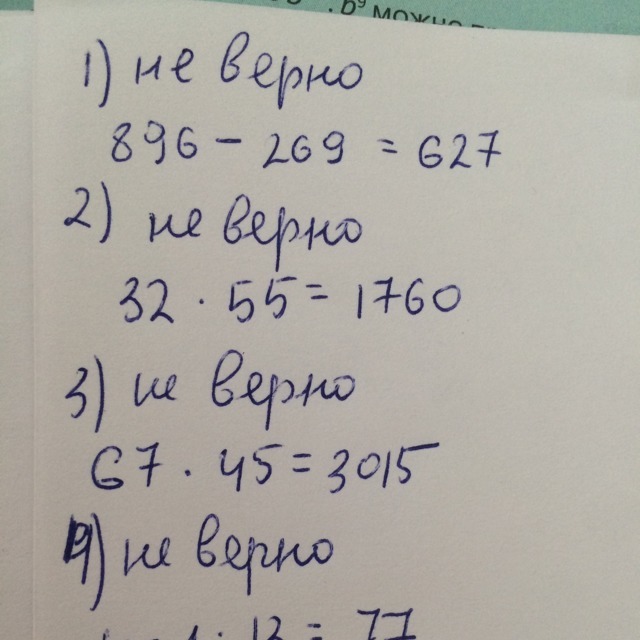 можно
1) не верно
896 - 269 = 627
2) не верно
32 · 55 = 1760
3) не верно
67 · 45 = 3015
4) не верно
: 13 = 77